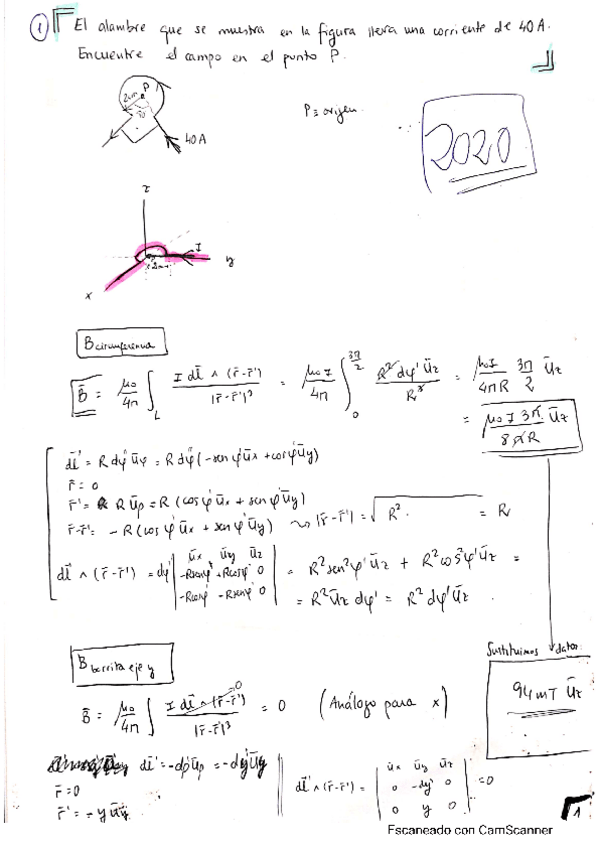 ① El alambre que se muestra en la figura lleva una corriente de 40 A.
Encuentre el campo en el punto P.
P
2cm
90°
40 A
P ≡ origen.
2020
z
I
2cm
y
x
B circunferencia
B̄ = μ₀/4π ∫_L I dl̄ ∧ (r̄-r̄')/|r̄-r̄'|³ = μ₀I/4π ∫₀^{3π/2} R² dφ' ūz/R³ = μ₀I/4πR 3π/2 ūz
= μ₀ I 3π/8πR ūz
dl̄' = R dφ' ūφ = R dφ' (-sen φ' ūx + cos φ' ūy)
r̄ = 0
r̄' = R ūρ = R (cos φ' ūx + sen φ' ūy)
r̄-r̄' = -R (cos φ' ūx + sen φ' ūy) ⇝ |r̄-r̄'| = √R² = R
ūx ūy ūz
dl̄' ∧ (r̄-r̄') = dφ' | -R sen φ' +R cos φ' 0 | = R² sen² φ' ūz + R² cos² φ' ūz =
-R cos φ' -R sen φ' 0
= R² ūz dφ' = R² dφ' ūz
Sustituimos datos
94 mT ūz
B barrita eje y
B̄ = μ₀/4π ∫ I dl̄ ∧ (r̄-r̄')/|r̄-r̄'|³ = 0 (Análogo para x)
0
dl̄' = -dρ' ūρ = -dy' ūy
r̄ = 0
r̄' = -y ūy
ūx ūy ūz
dl̄' ∧ (r̄-r̄') = | 0 -dy' 0 | = 0
0 y 0
1
Escaneado con CamScanner